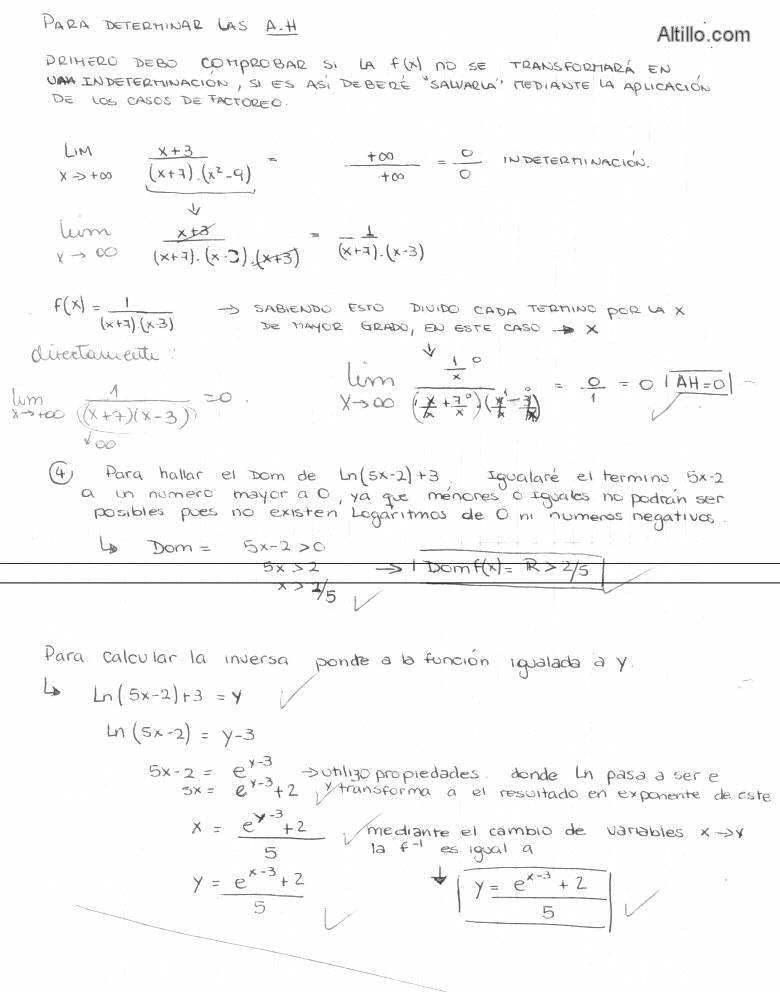 PARA DETERMINAR LAS A.H
Altillo.com
PRIMERO DEBO COMPROBAR SI LA f(x) NO SE TRANSFORMARÁ EN
UNA INDETERMINACIÓN, SI ES ASÍ DEBERÉ "SALVARLA" MEDIANTE LA APLICACIÓN
DE LOS CASOS DE FACTOREO.
LIM x→+∞ (x+3)/((x+7).(x²-9)) = +∞/+∞ = 0/0 INDETERMINACIÓN.
lim x→∞ (x+3)/((x+7).(x-3).(x+3)) = 1/((x+7).(x-3))
f(x) = 1/((x+7).(x-3)) → SABIENDO ESTO DIVIDO CADA TERMINO POR LA X
DE MAYOR GRADO, EN ESTE CASO → X
directamente:
lim x→+∞ 1/((x+7)(x-3)) = 0.
↓∞
lim x→∞ (1/x)/((x/x + 7/x).(x/x - 3/x)) = 0/1 = 0 AH=0
④ Para hallar el Dom de Ln(5x-2)+3 Igualaré el termino 5x-2
a un numero mayor a 0, ya que menores o iguales no podrán ser
posibles pues no existen Logaritmos de 0 ni numeros negativos.
↳ Dom = 5x-2 >0
5x >2 → Dom f(x) = R > 2/5
x > 2/5
Para calcular la inversa ponde a la función igualada a y.
↳ Ln(5x-2)+3 = y
Ln(5x-2) = y-3
5x-2 = e^(y-3) → utilizo propiedades. donde Ln pasa a ser e
5x = e^(y-3)+2 y transforma a el resultado en exponente de este
x = (e^(y-3)+2)/5 mediante el cambio de variables x→y
la f⁻¹ es igual a
y = (e^(x-3)+2)/5 ↓ y = (e^(x-3)+2)/5